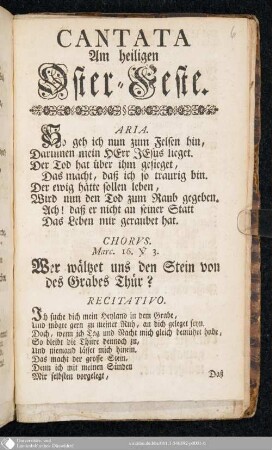 6
CANTATA
Am heiligen
Oster-Feste.
ARIA.
So geh ich nun zum Felsen hin,
Darinnen mein HErr JEsus lieget.
Der Tod hat über ihm gesieget,
Das macht, daß ich so traurig bin.
Der ewig hätte sollen leben,
Wird nun den Tod zum Raub gegeben.
Ach! daß er nicht an seiner Statt
Das Leben mir geraubet hat.
CHORVS.
Marc. 16. V 3.
Wer wältzet uns den Stein von
des Grabes Thür?
RECITATIVO.
Ich suche dich mein Heyland in dem Grabe,
Und mögte gern zu meiner Ruh, an dich geleget seyn.
Doch, wenn ich Tag und Nacht mich gleich bemühet habe,
So bleibt die Thüre dennoch zu,
Und niemand lässet mich hinein.
Das macht der grosse Stein,
Denn ich mit meinen Sünden
Mir selbsten vorgelegt,
Daß